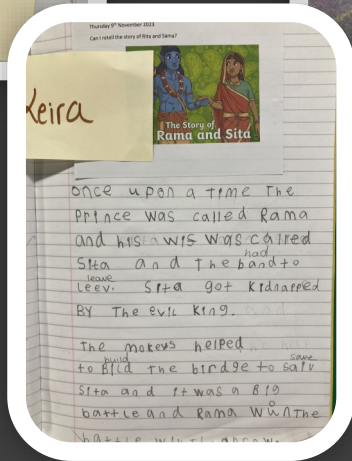 Thursday 9th November 2023
Can I retell the story of Rita and Sama?
Keira
The Story of
Rama and Sita
once upon a time The
Prince was called Rama
and his wis was calred
had
Sita and The band to
leave
leev. Sita got Kidnapped
BY The evil King.
The mokeys helped
build save
to Bild the birdge to saiv
Sita and it was a Big
o
battle and Rama wun The
battle with